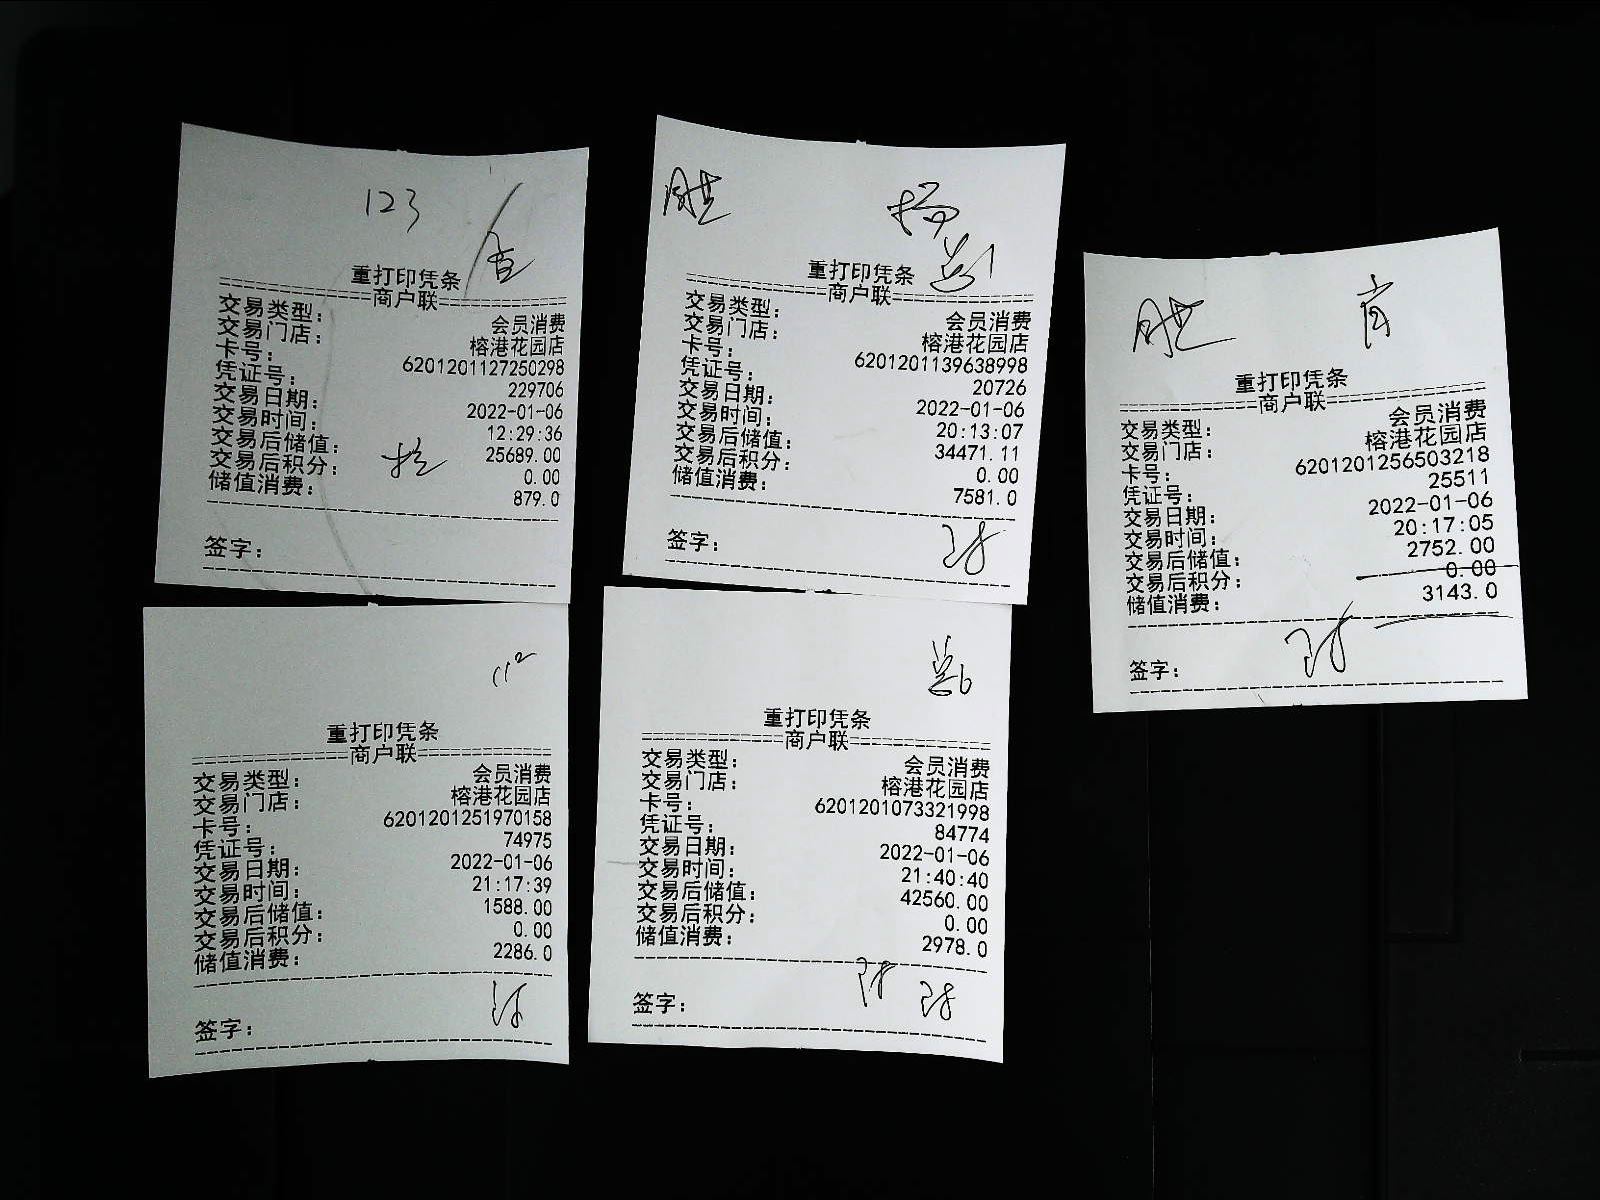 123
重打印凭条
==========商户联==========
交易类型: 会员消费
交易门店: 榕港花园店
卡号: 6201201127250298
凭证号: 229706
交易日期: 2022-01-06
交易时间: 12:29:36
交易后储值: 25689.00
交易后积分: 0.00
储值消费: 879.0
签字:
重打印凭条
==========商户联==========
交易类型: 会员消费
交易门店: 榕港花园店
卡号: 6201201139638998
凭证号: 20726
交易日期: 2022-01-06
交易时间: 20:13:07
交易后储值: 34471.11
交易后积分: 0.00
储值消费: 7581.0
签字:
重打印凭条
==========商户联==========
交易类型: 会员消费
交易门店: 榕港花园店
卡号: 6201201256503218
凭证号: 25511
交易日期: 2022-01-06
交易时间: 20:17:05
交易后储值: 2752.00
交易后积分: 0.00
储值消费: 3143.0
签字:
112
重打印凭条
==========商户联==========
交易类型: 会员消费
交易门店: 榕港花园店
卡号: 6201201251970158
凭证号: 74975
交易日期: 2022-01-06
交易时间: 21:17:39
交易后储值: 1588.00
交易后积分: 0.00
储值消费: 2286.0
签字:
重打印凭条
==========商户联==========
交易类型: 会员消费
交易门店: 榕港花园店
卡号: 6201201073321998
凭证号: 84774
交易日期: 2022-01-06
交易时间: 21:40:40
交易后储值: 42560.00
交易后积分: 0.00
储值消费: 2978.0
签字: